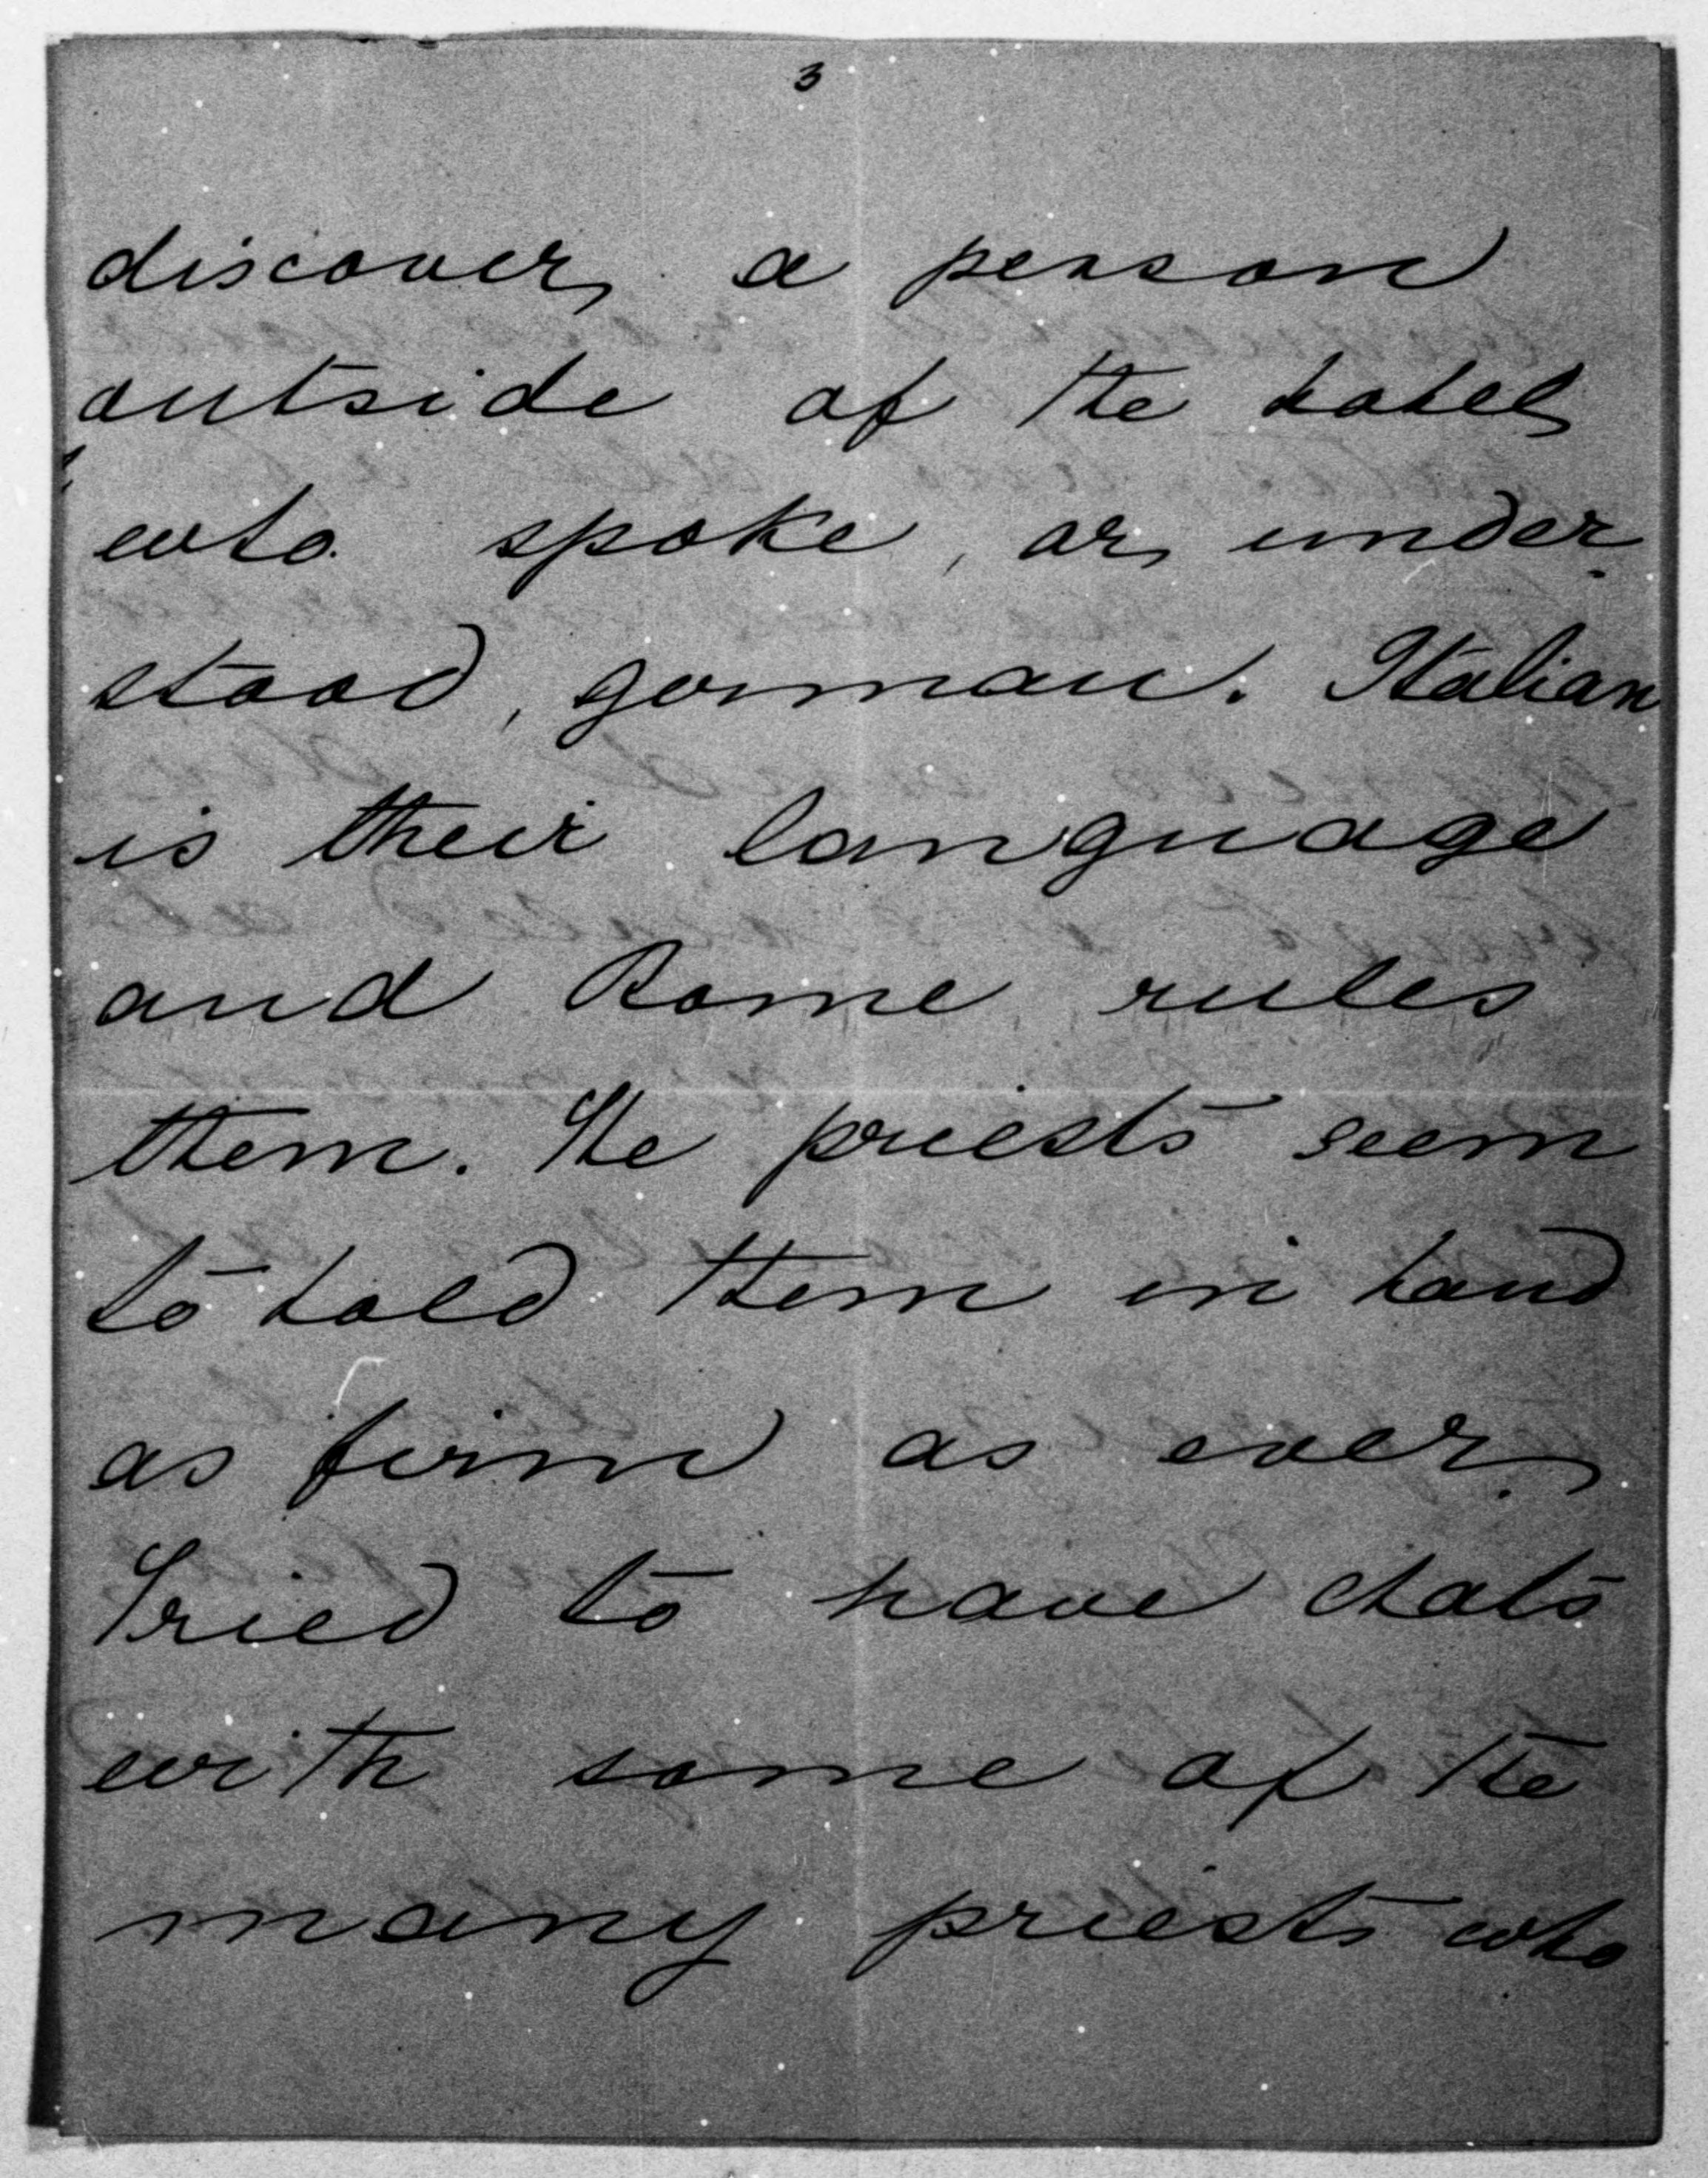 3
discover a person
outside of the hotel
who spoke, or under
stood, german. Italian
is their language
and Rome rules
them. The priests seem
to hold them in hand
as firm as ever.
Tried to have chats
with some of the
many priests who